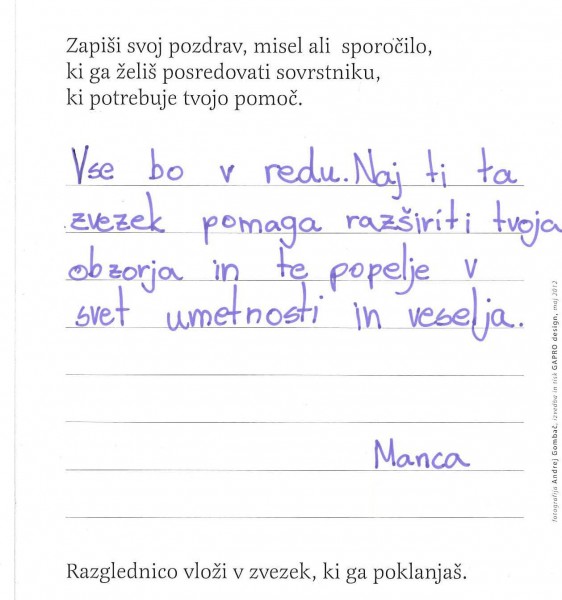 Zapiši svoj pozdrav, misel ali sporočilo,
ki ga želiš posredovati sovrstniku,
ki potrebuje tvojo pomoč.
Vse bo v redu. Naj ti ta
zvezek pomaga razširiti tvoja
obzorja in te popelje v
svet umetnosti in veselja.
Manca
Razglednico vloži v zvezek, ki ga poklanjaš.
fotografija Andrej Gombač, izvedba in tisk GAPRO design, maj 2012